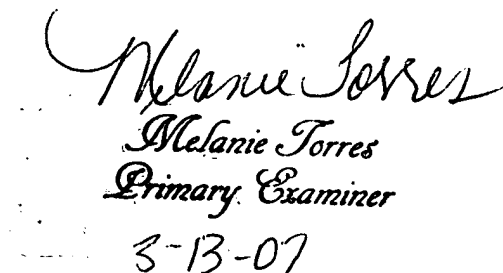 Melanie Torres
Melanie Torres
Primary Examiner
3-13-07